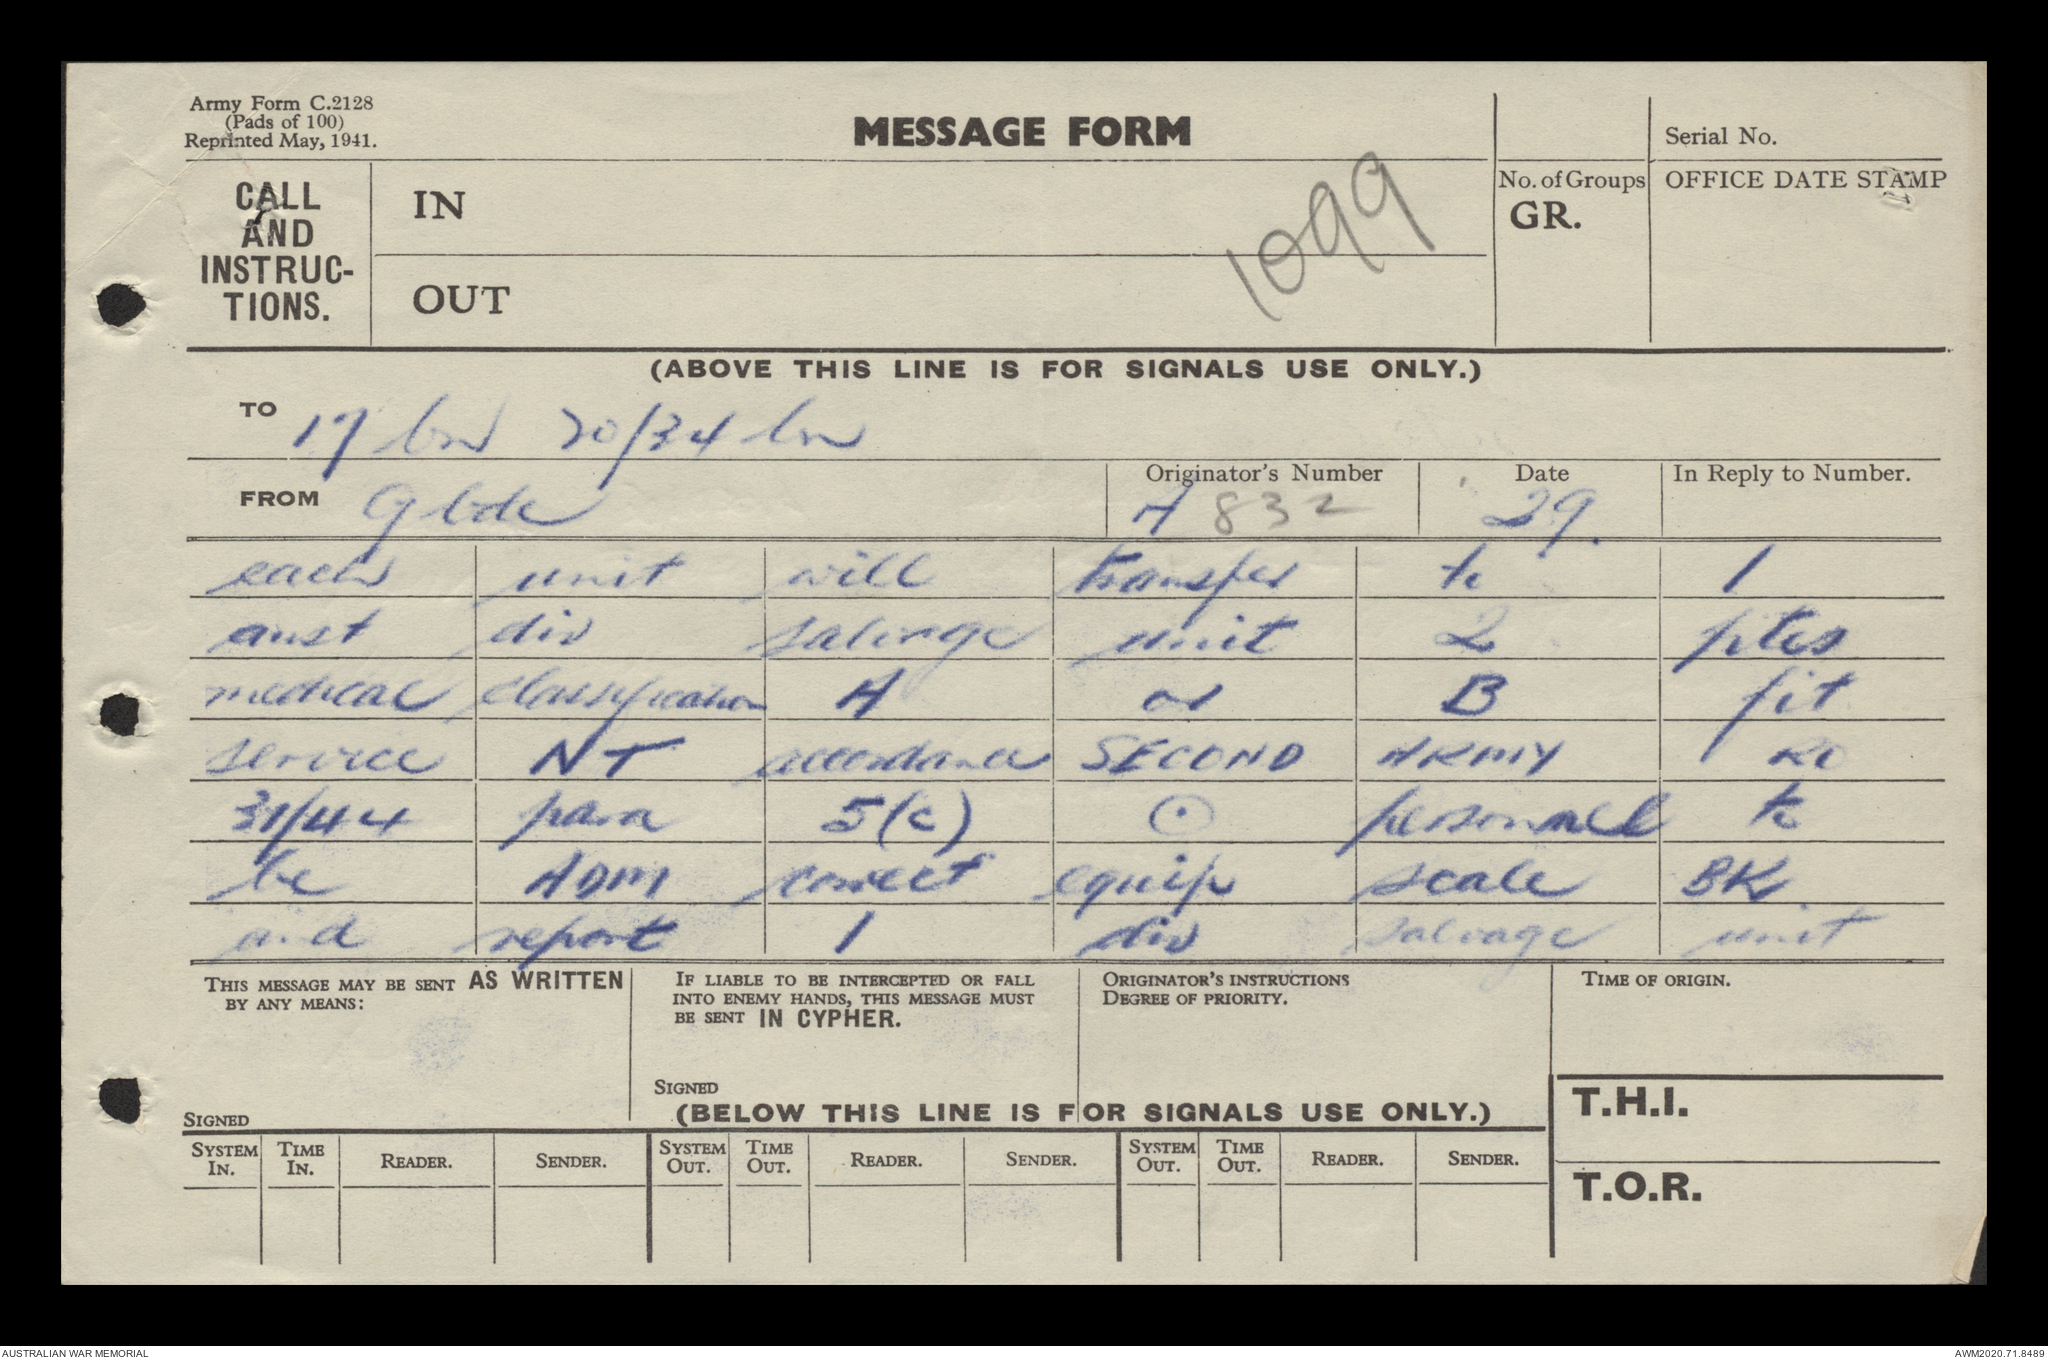 Army Form C.2128
(Pads of 100)
Reprinted May, 1941.
MESSAGE FORM
Serial No.
CALL AND INSTRUC-TIONS.
IN
1099
No. of Groups
GR.
OFFICE DATE STAMP
OUT
(ABOVE THIS LINE IS FOR SIGNALS USE ONLY.)
TO 17 bn 20/34 bn
FROM 9 bde
Originator's Number A 832
Date 29.
In Reply to Number.
each unit will transfer to 1
aust div salvage unit 2 ptes
medical classification A or B fit
service NT accordance SECOND ARMY RO
31/44 para 5(c) ⊙ personnel to
be ADM correct equip scale BK
and report 1 div salvage unit
THIS MESSAGE MAY BE SENT AS WRITTEN
BY ANY MEANS:
SIGNED
IF LIABLE TO BE INTERCEPTED OR FALL
INTO ENEMY HANDS, THIS MESSAGE MUST
BE SENT IN CYPHER.
SIGNED
ORIGINATOR'S INSTRUCTIONS
DEGREE OF PRIORITY.
TIME OF ORIGIN.
(BELOW THIS LINE IS FOR SIGNALS USE ONLY.)
T.H.I.
SYSTEM IN. TIME IN. READER. SENDER. SYSTEM OUT. TIME OUT. READER. SENDER. SYSTEM OUT. TIME OUT. READER. SENDER.
T.O.R.
AUSTRALIAN WAR MEMORIAL
AWM2020.71.8489